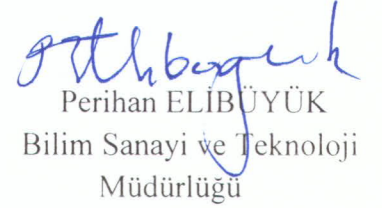 Perihan ELİBÜYÜK
Bilim Sanayi ve Teknoloji
Müdürlüğü